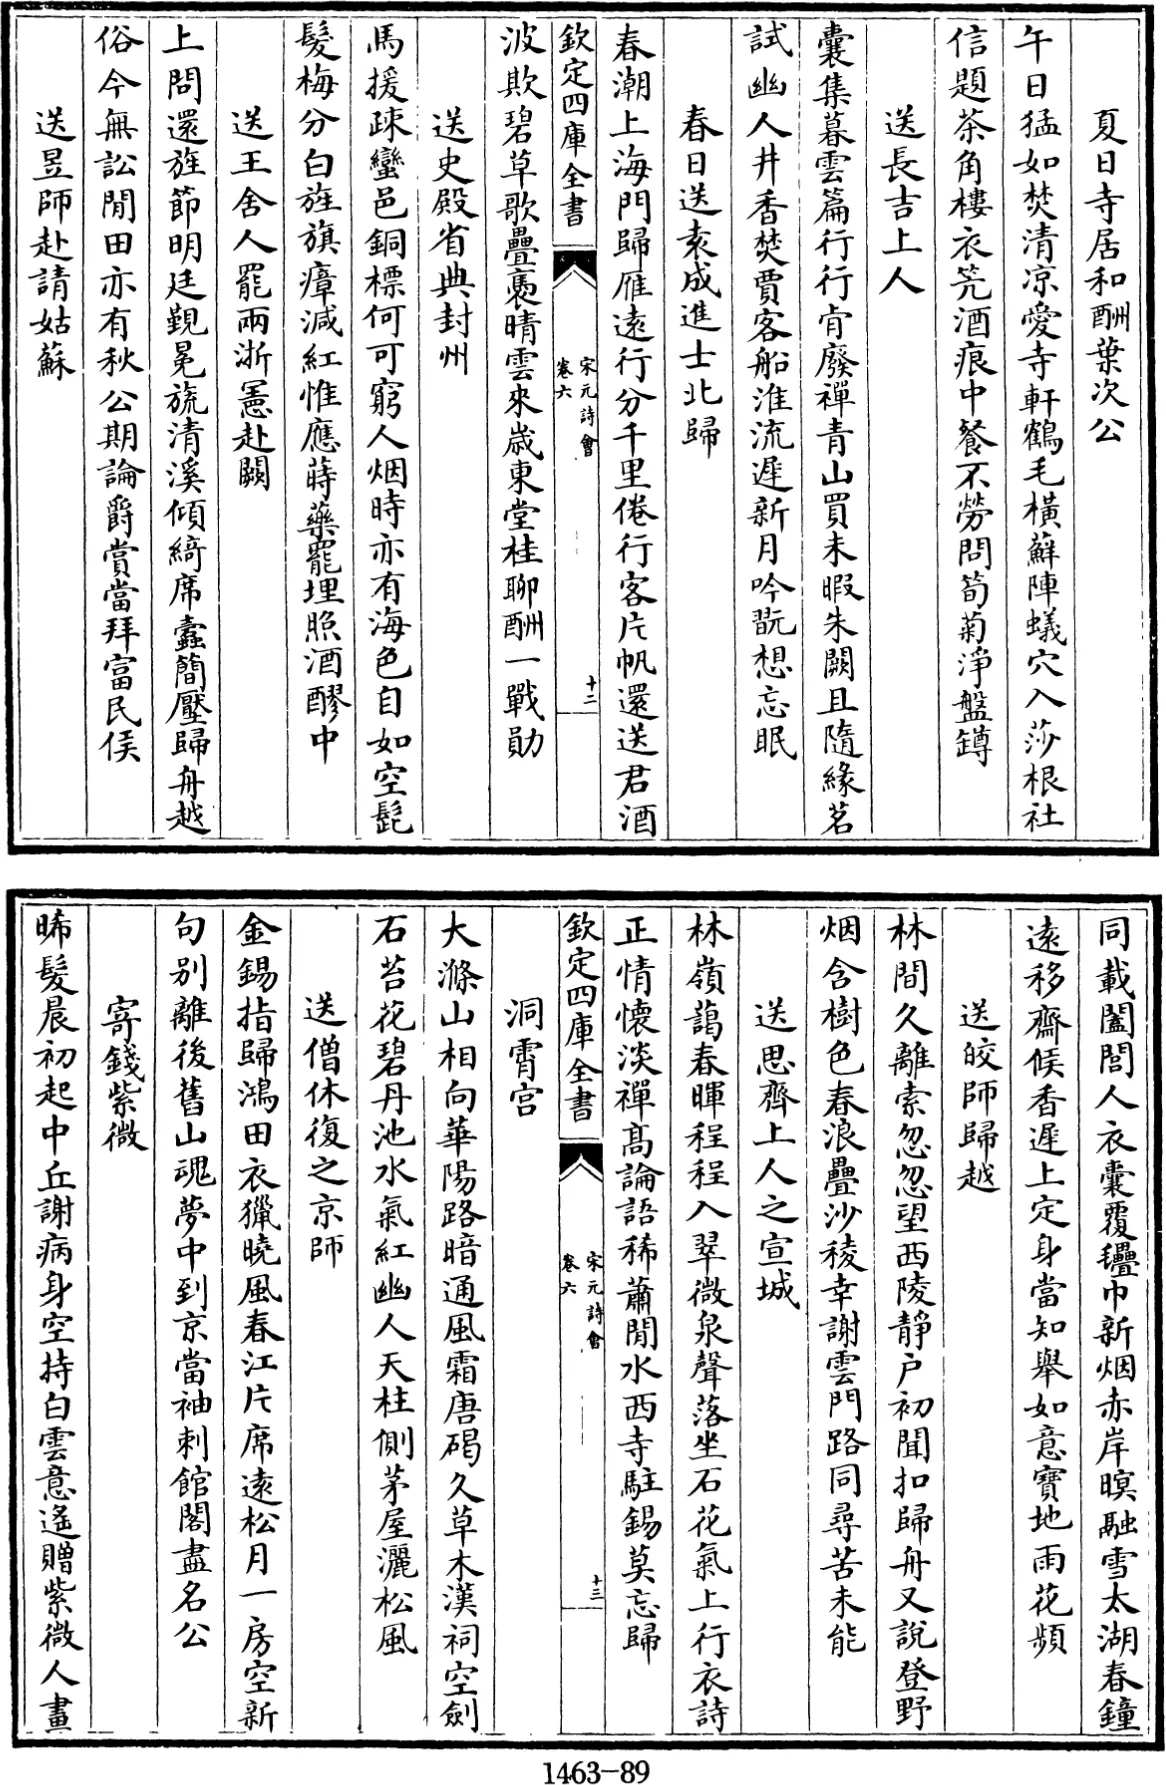 夏日寺居和酬葉次公
午日猛如焚清凉愛寺軒鶴毛橫蘚陣蟻穴入莎根社
信題茶角樓衣笐酒痕中餐不勞問筍菊淨盤罇
送長吉上人
囊集暮雲篇行行肯廢禪青山買未暇朱闕且隨緣茗
試幽人井香焚賈客船淮流遲新月吟翫想忘眠
春日送袁成進士北歸
春潮上海門歸雁遠行分千里倦行客片帆還送君酒
欽定四庫全書
宋元詩會
卷六
十二
波欺碧草歌疊褭晴雲來歲東堂桂聊酬一戰勛
送史殿省典封州
馬援疎蠻邑銅標何可窮人烟時亦有海色自如空髭
髮梅分白旌旗瘴減紅惟應蒔藥罷埋照酒醪中
送王舍人罷兩浙憲赴闕
上問還旌節明廷覲冕旒清溪傾綺席蠹簡壓歸舟越
俗今無訟閒田亦有秋公期論爵賞當拜富民侯
送昱師赴請姑蘇
同載闔閭人衣囊覆氎巾新烟赤岸暝融雪太湖春鐘
遠移齋候香遲上定身當知舉如意寶地雨花頻
送皎師歸越
林間久離索忽忽望西陵靜户初聞扣歸舟又說登野
烟含樹色春浪疊沙稜幸謝雲門路同尋苦未能
送思齊上人之宣城
林嶺藹春暉程程入翠微泉聲落坐石花氣上行衣詩
正情懷淡禪高論語稀蕭閒水西寺駐錫莫忘歸
欽定四庫全書
宋元詩會
卷六
十三
洞霄宮
大滌山相向華陽路暗通風霜唐碣久草木漢祠空劍
石苔花碧丹池水氣紅幽人天柱側茅屋灑松風
送僧休復之京師
金錫指歸鴻田衣獵曉風春江片席遠松月一房空新
句別離後舊山魂夢中到京當袖刺館閣盡名公
寄錢紫微
晞髮晨初起中丘謝病身空持白雲意遙贈紫微人畫
1463-89